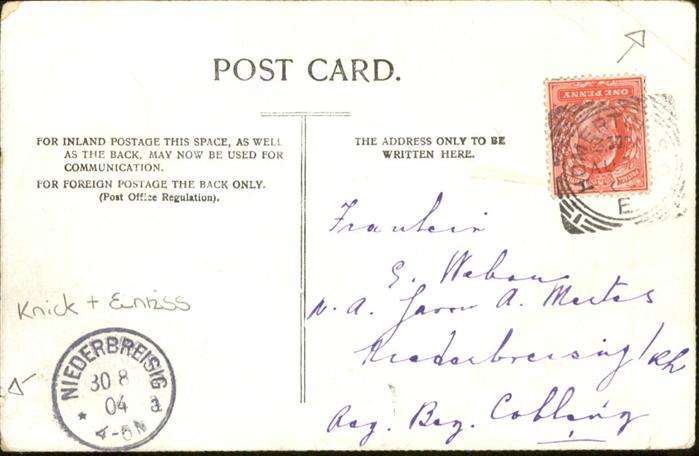 POST CARD.
FOR INLAND POSTAGE THIS SPACE, AS WELL
AS THE BACK, MAY NOW BE USED FOR
COMMUNICATION.
FOR FOREIGN POSTAGE THE BACK ONLY.
(Post Office Regulation).
THE ADDRESS ONLY TO BE
WRITTEN HERE.
ONE PENNY
HOMERT
E
Fraulein
A.
Niederbreisig/Rh
Reg. Bez. Coblenz
Knick + Einriss
NIEDERBREISIG
30 8
04 a
* 4-5N